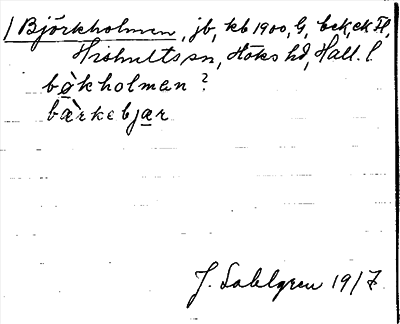 / Björkholmen, jb, kb 1900, G, bek, ek Fl,
Hishults sn, Höks hd, Hall. l.
bø̀kholman ?
bæ̀rkebjær
J. Sahlgren 1917.